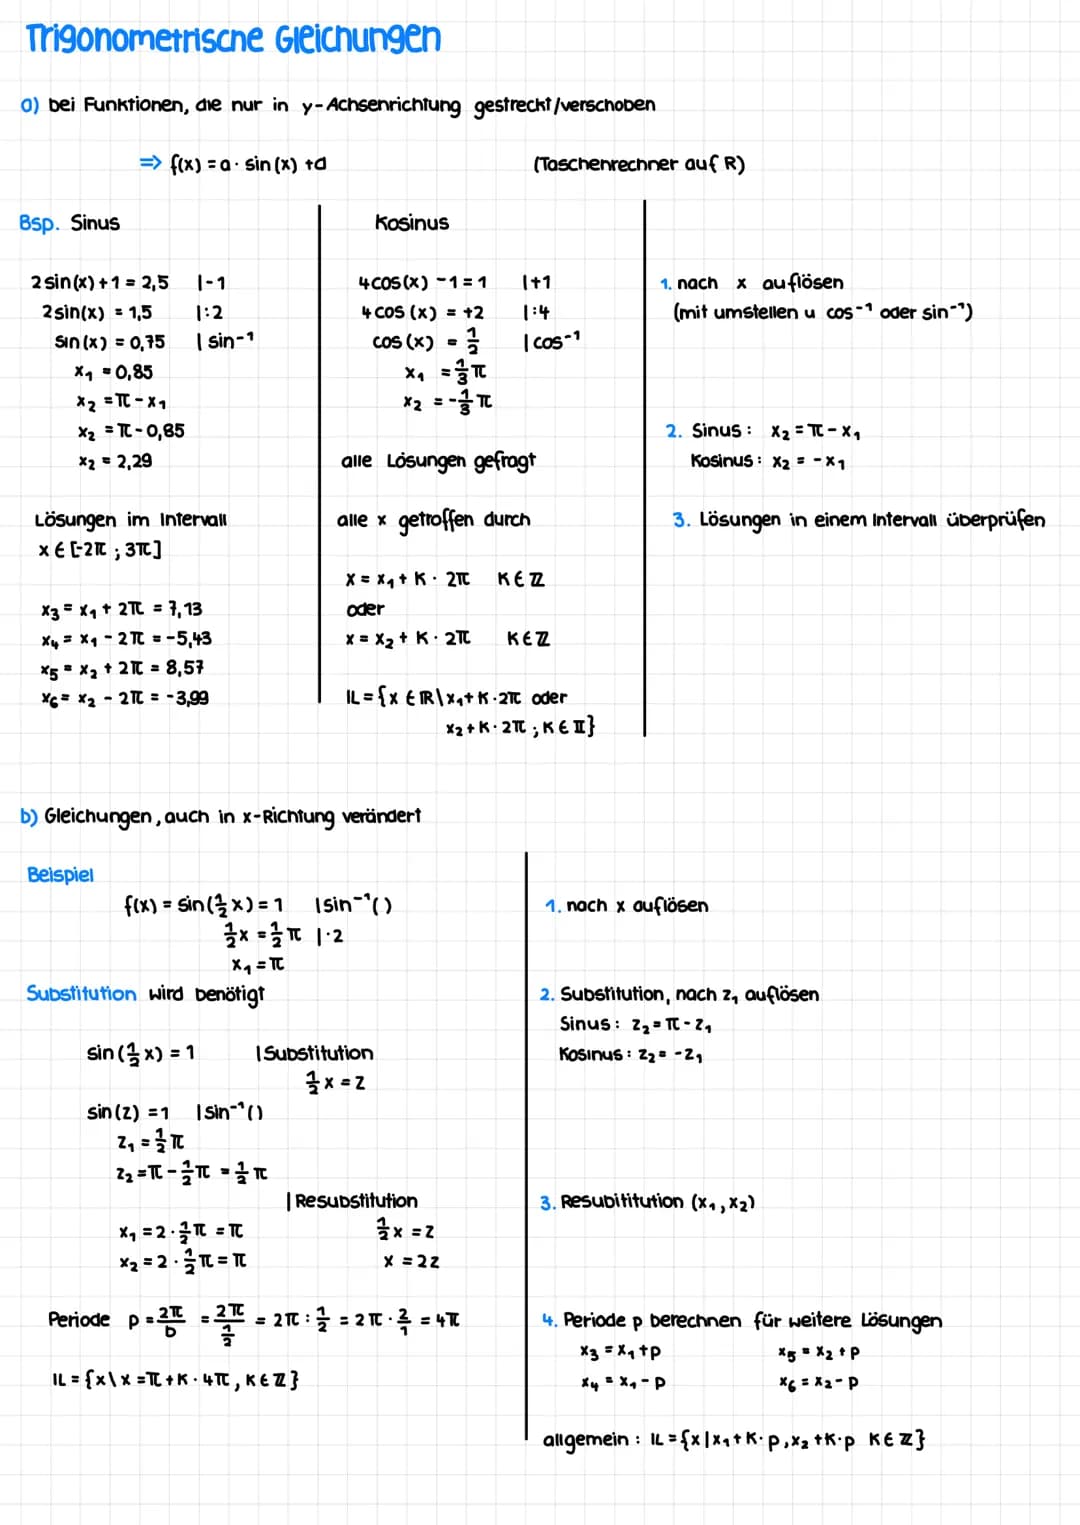 Trigonometrische Gleichungen
a) bei Funktionen, die nur in y-Achsenrichtung gestreckt/verschoben
⇒ f(x) = a · sin(x) + d
(Taschenrechner auf R)
Bsp. Sinus
2sin(x)+1 = 2,5 |-1
2sin(x) = 1,5 |:2
sin(x) = 0,75 | sin⁻¹
x₁ = 0,85
x₂ = π - x₁
x₂ = π - 0,85
x₂ = 2,29
Lösungen im Intervall
x ∈ [-2π ; 3π]
x₃ = x₁ + 2π = 7,13
x₄ = x₁ - 2π = -5,43
x₅ = x₂ + 2π = 8,57
x₆ = x₂ - 2π = -3,99
Kosinus
4cos(x) -1 = 1 |+1
4cos(x) = +2 |:4
cos(x) = 1/2 | cos⁻¹
x₁ = 1/3 π
x₂ = -1/3 π
alle Lösungen gefragt
alle x getroffen durch
x = x₁ + K · 2π K ∈ ℤ
oder
x = x₂ + K · 2π K ∈ ℤ
𝕃 = {x ∈ ℝ\x₁ + K · 2π oder
x₂ + K · 2π ; K ∈ 𝕀}
1. nach x auflösen
(mit umstellen u cos⁻¹ oder sin⁻¹)
2. Sinus: x₂ = π - x₁
Kosinus: x₂ = -x₁
3. Lösungen in einem Intervall überprüfen
b) Gleichungen, auch in x-Richtung verändert
Beispiel
f(x) = sin(1/2 x) = 1 | sin⁻¹()
1/2 x = 1/2 π | · 2
x₁ = π
Substitution wird benötigt
sin(1/2 x) = 1 | Substitution
1/2 x = z
sin(z) = 1 | sin⁻¹()
z₁ = 1/2 π
z₂ = π - 1/2 π = 1/2 π
| Resubstitution
x₁ = 2 · 1/2 π = π 1/2 x = z
x₂ = 2 · 1/2 π = π x = 2z
Periode p = 2π/b = 2π/(1/2) = 2π : 1/2 = 2π · 2/1 = 4π
𝕃 = {x\x = π + K · 4π, K ∈ ℤ}
1. nach x auflösen
2. Substitution, nach z₁ auflösen
Sinus: z₂ = π - z₁
Kosinus: z₂ = -z₁
3. Resubititution (x₁, x₂)
4. Periode p berechnen für weitere Lösungen
x₃ = x₁ + p x₅ = x₂ + p
x₄ = x₁ - p x₆ = x₂ - p
allgemein: 𝕃 = {x | x₁ + K · p, x₂ + K · p K ∈ ℤ}